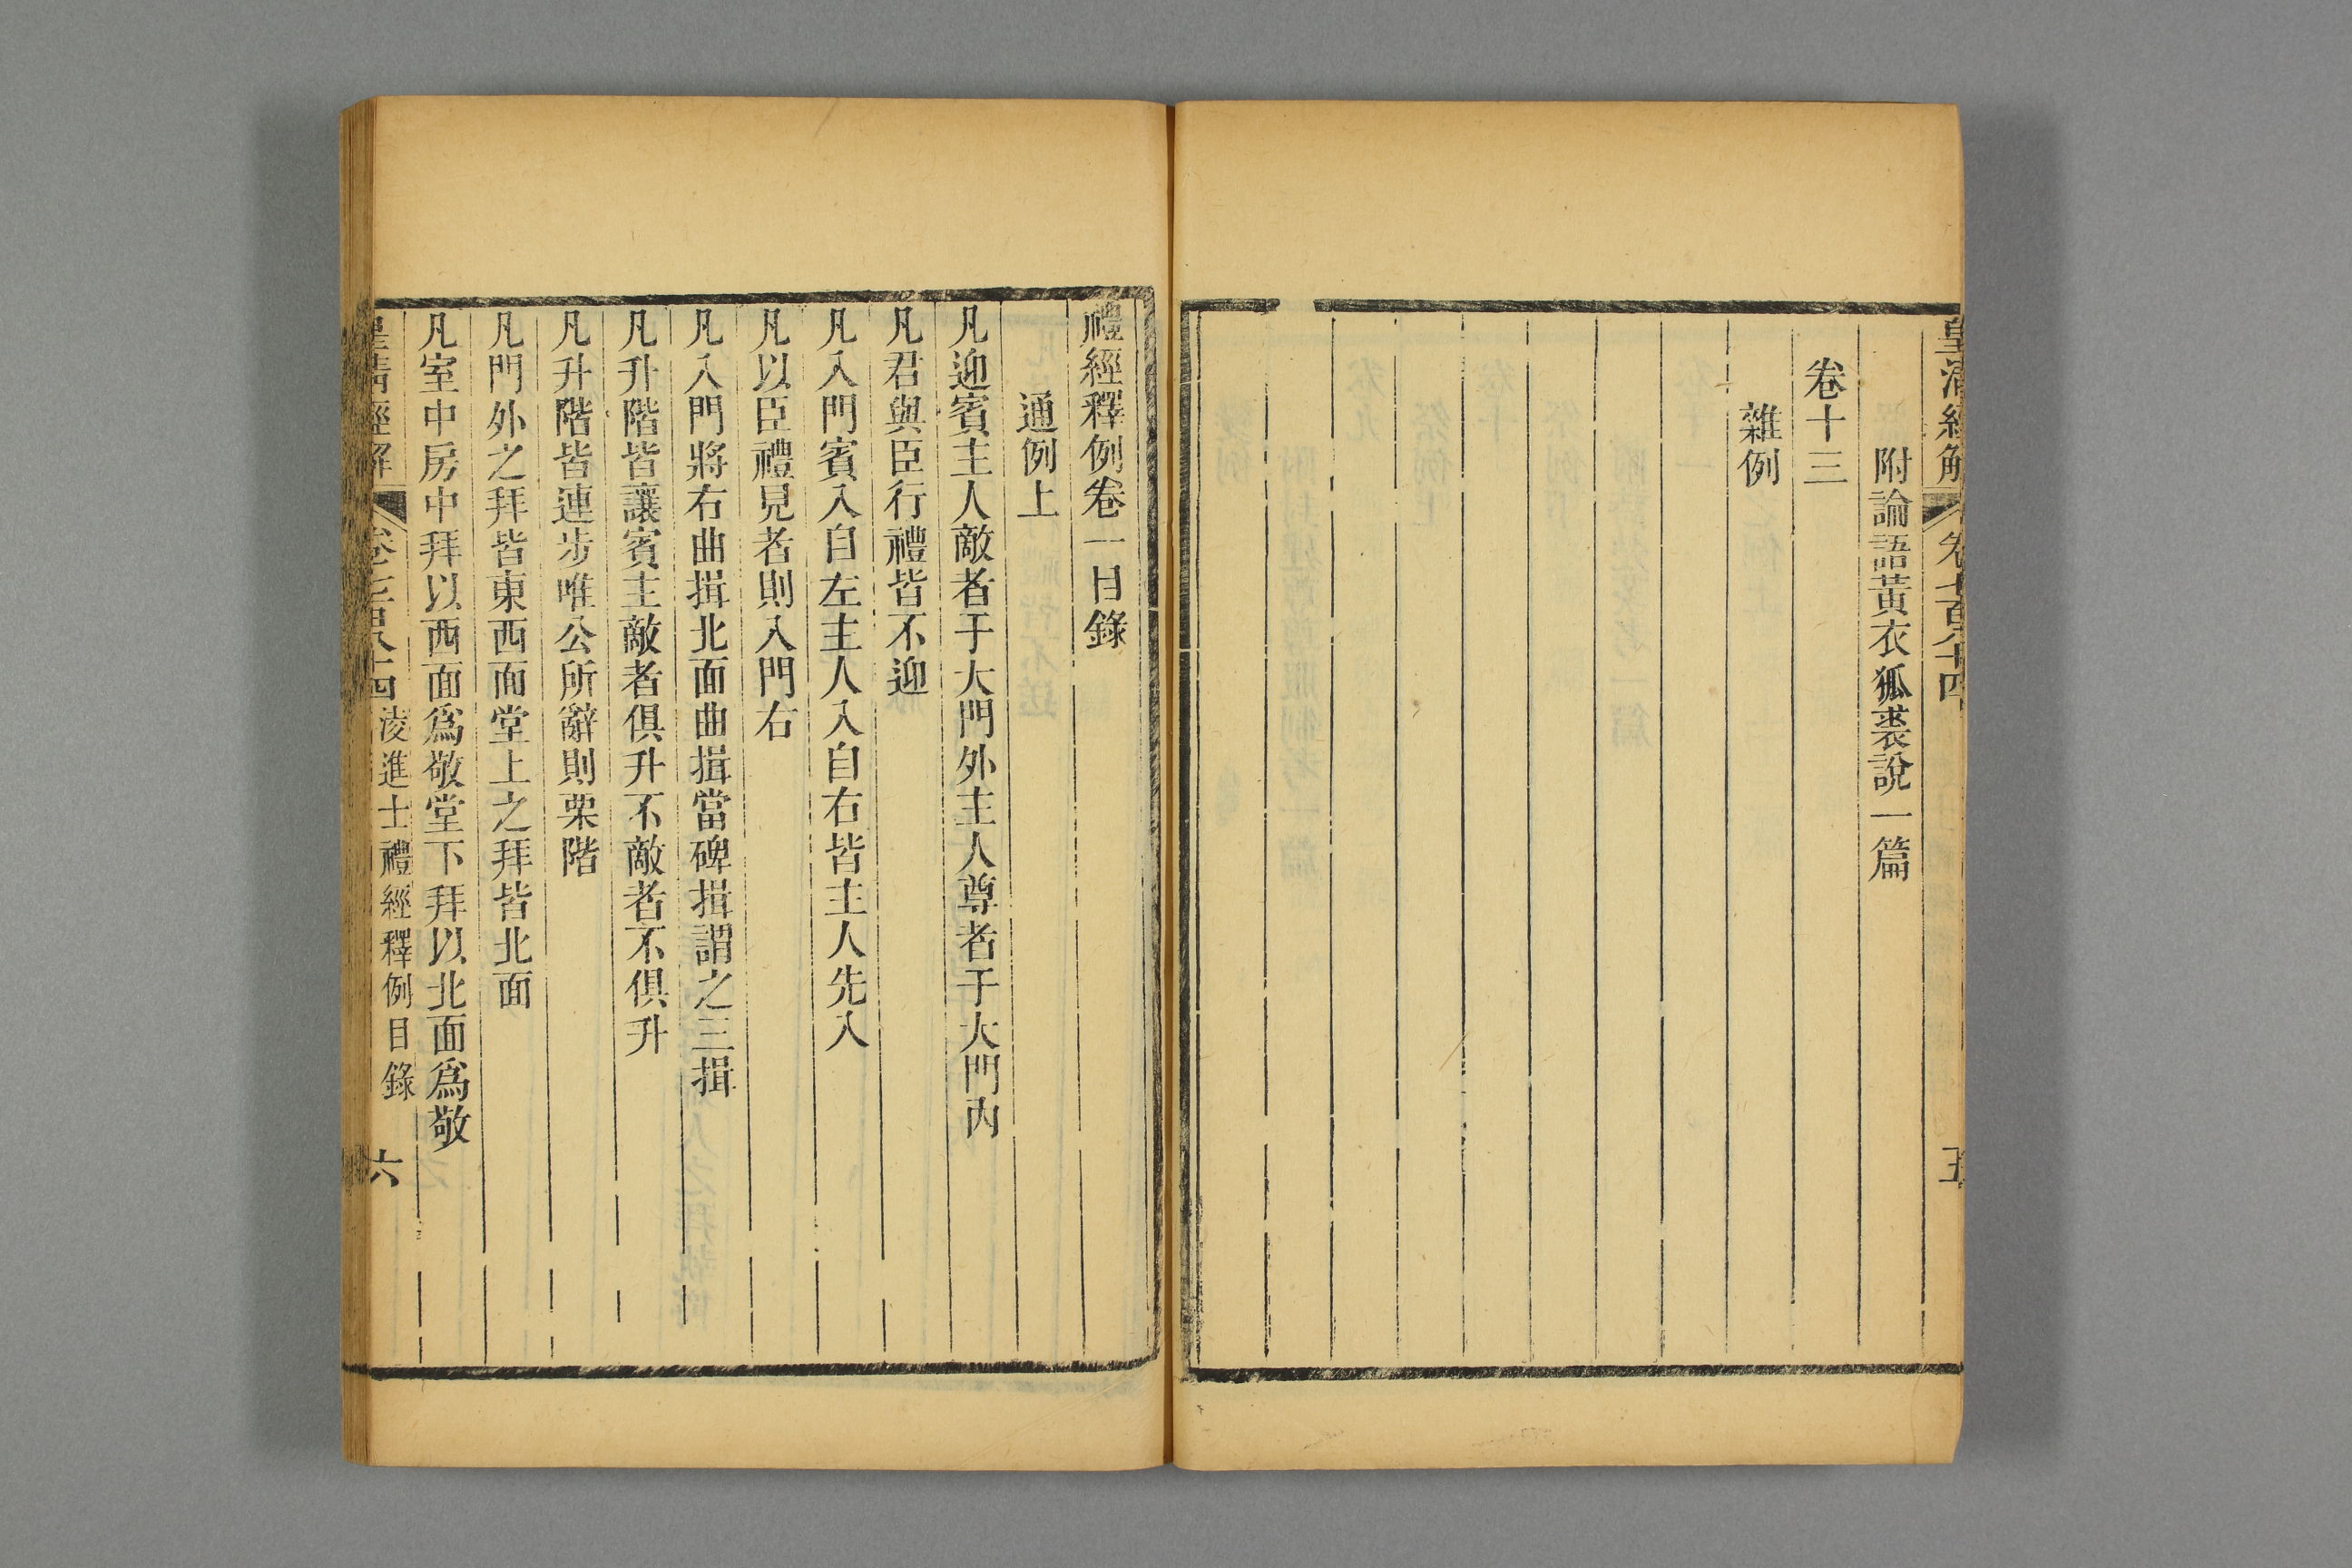 皇清經解 卷七百八十四 五
附論語黃衣狐裘說一篇
卷十三
雜例
禮經釋例卷一目錄
通例上
凡迎賓主人敵者于大門外主人尊者于大門內
凡君與臣行禮皆不迎
凡入門賓入自左主人入自右皆主人先入
凡以臣禮見者則入門右
凡入門將右曲揖北面曲揖當碑揖謂之三揖
凡升階皆讓賓主敵者俱升不敵者不俱升
凡升階皆連步唯公所辭則栗階
凡門外之拜皆東西面堂上之拜皆北面
凡室中房中拜以西面為敬堂下拜以北面為敬
皇清經解 卷七百八十四 淩進士禮經釋例目錄 六